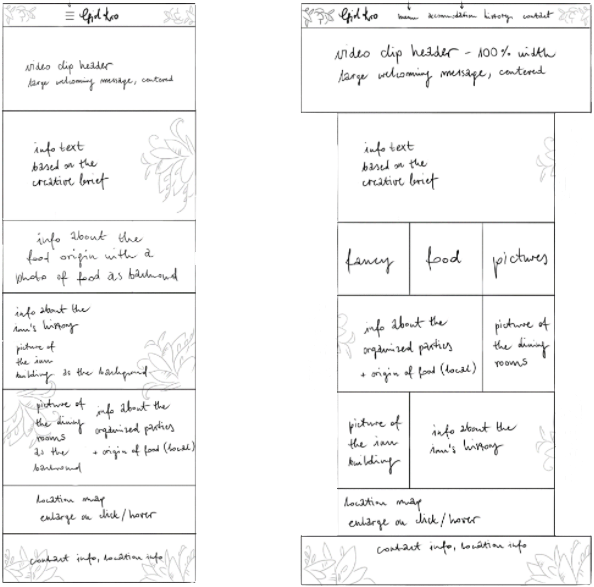 video clip header
large welcoming message, centered
info text
based on the
creative brief
info about the
food origin with a
photo of food as
info about the
inn's history
picture of
the inn
building as the background
picture of
the dining
rooms
as the
info about the
organized parties
+ origin of food (local)
location map
enlarge on click/hover
contact info, location info
menu accomodation history contact
video clip header - 100% width
large welcoming message, centered
info text
based on the
creative brief
fancy
food
pictures
info about the
organized parties
+ origin of food (local)
picture of
the dining
rooms
picture of
the inn
building
info about the
inn's history
location map
enlarge on click/hover
contact info, location info